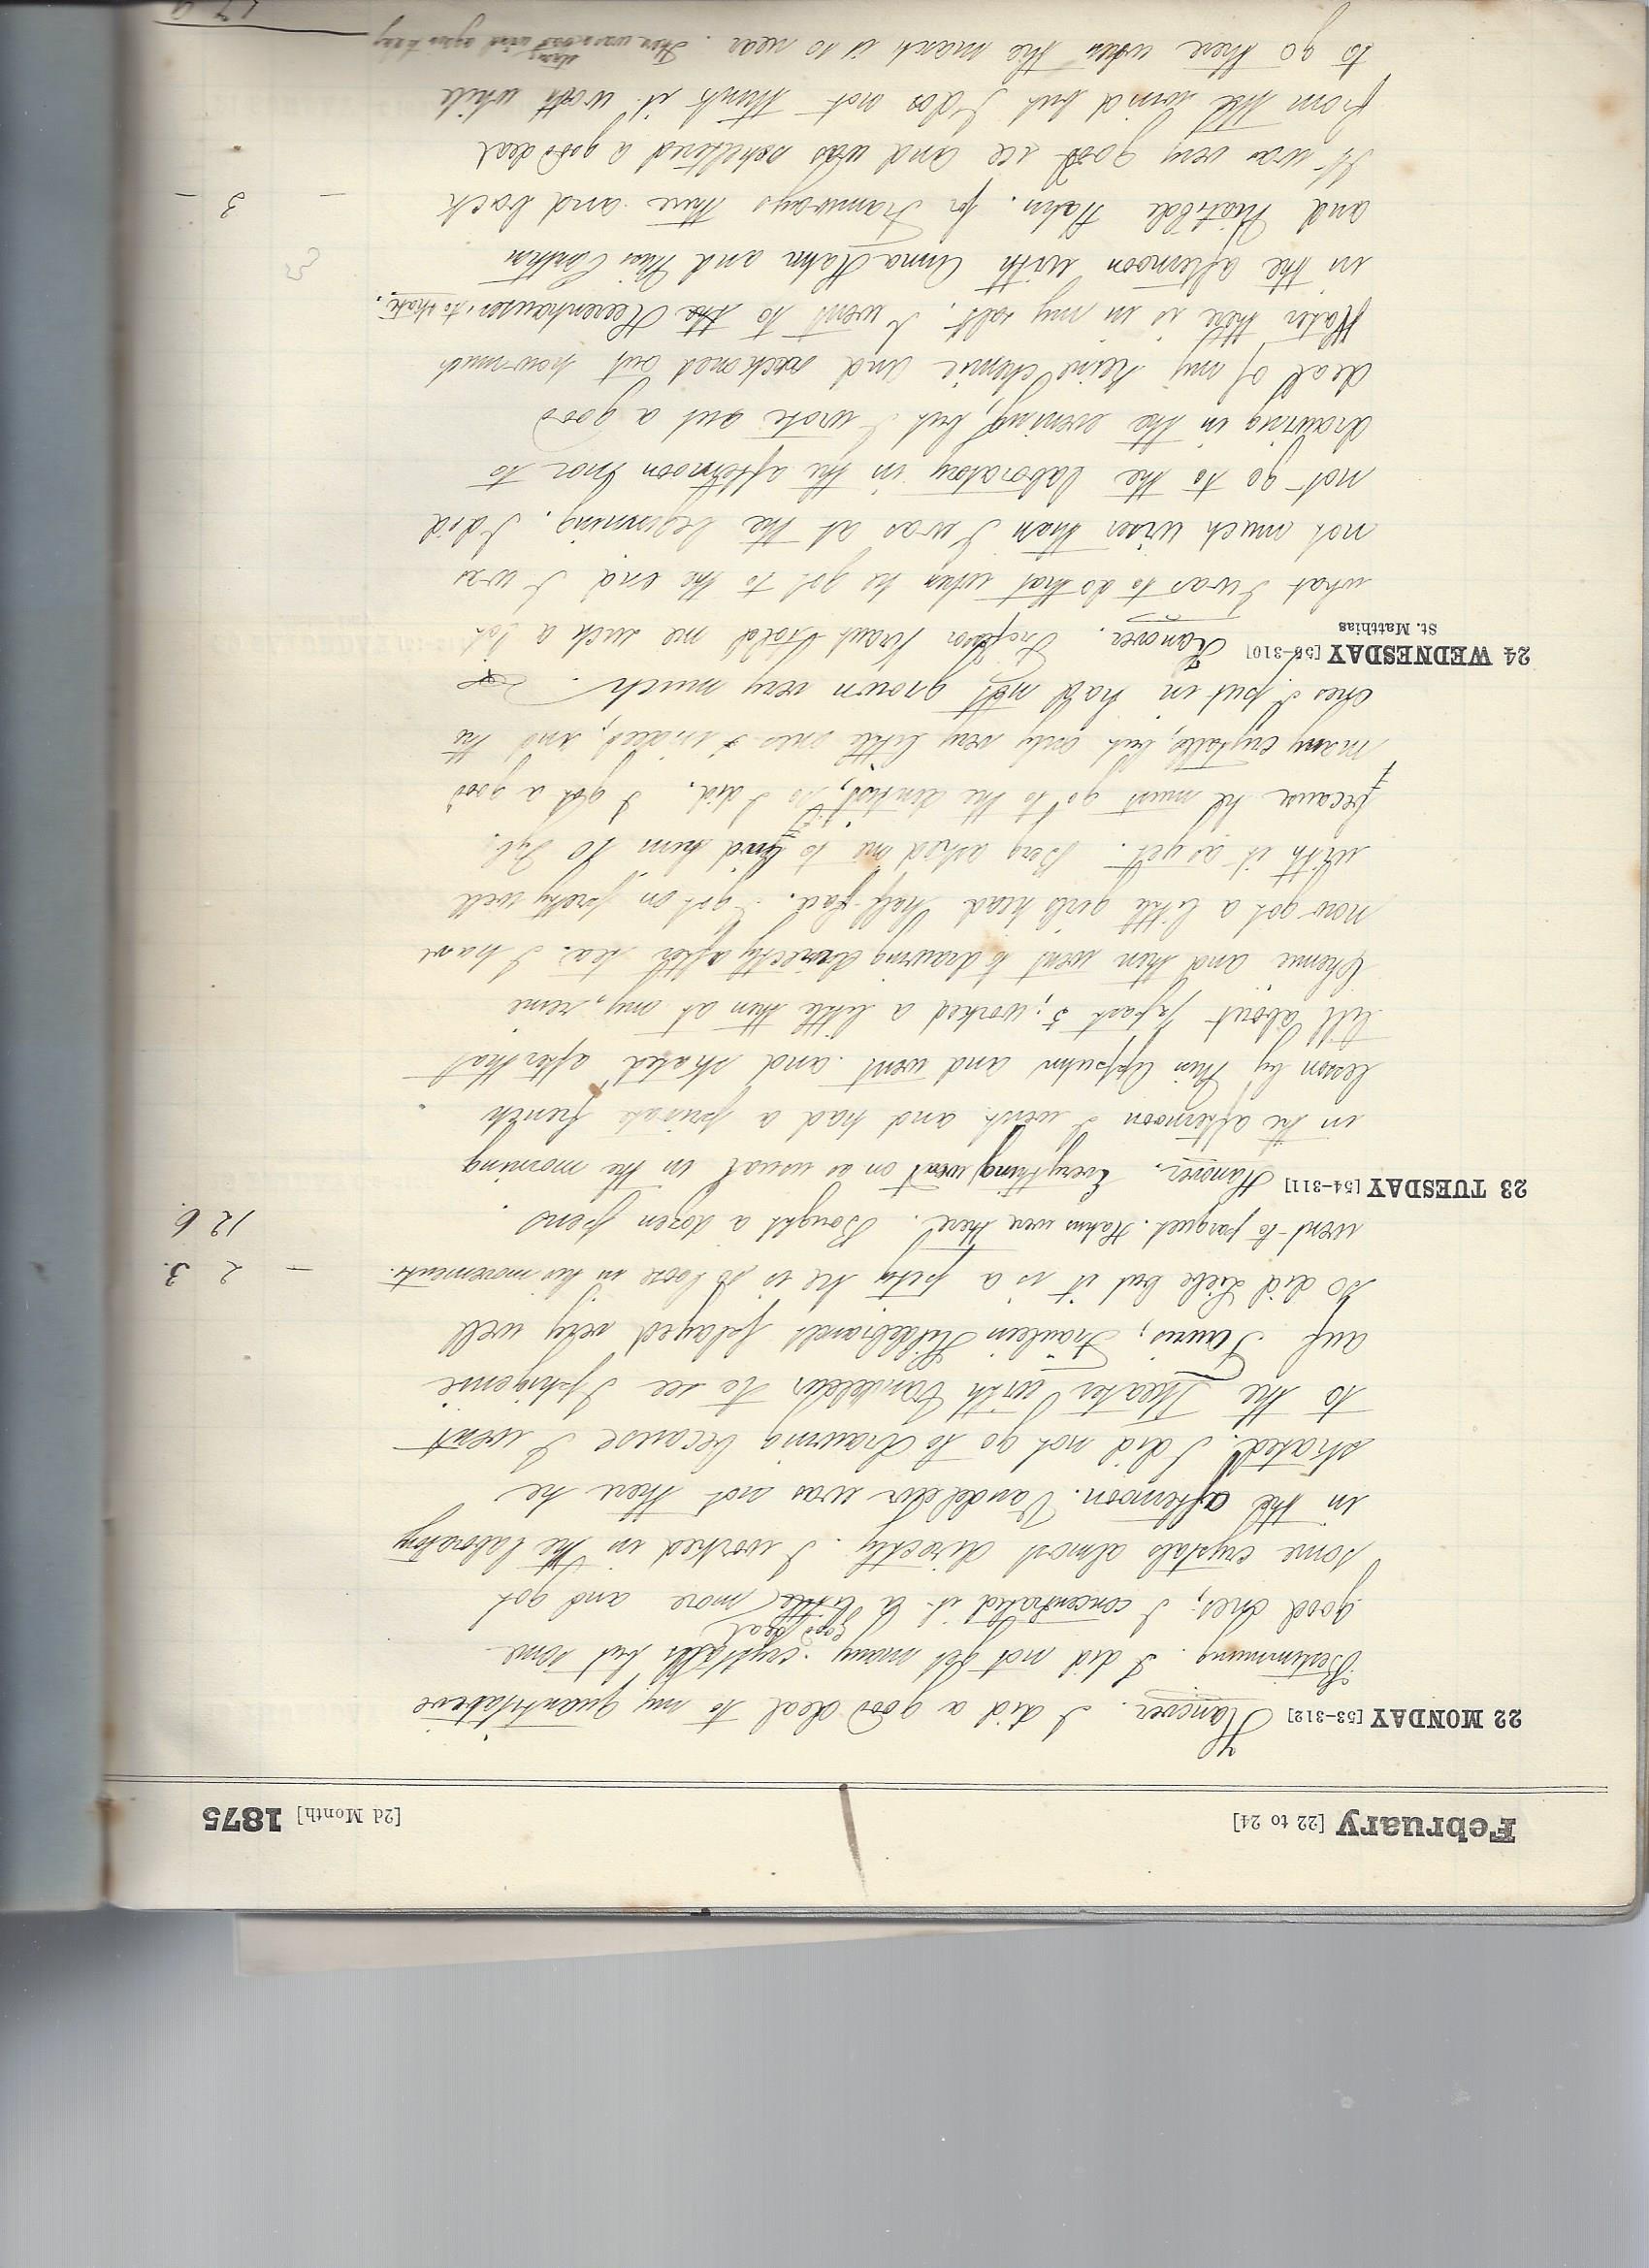 February [22 to 24] [2d Month] 1875
22 MONDAY [53-312] Hanover. I did a good deal to my quantitative
Bestimmung. I did not get many crystalls but some
good deal
good ones; I concentrated it a little more and got
some crystals almost directly. I worked in the laboratory
in the afternoon. Vandeleur was not there he
skated. I did not go to drawing because I went
to the Theater with Vandeleur to see Iphigenie
auf Tauris; Fräulein Hildebrandt played very well
so did Liebe but it is a pity he is so loose in his movements. – 2 3.
went to parquet. Hahns were there. Bought a dozen pens. 12 6.
23 TUESDAY [54-311] Hanover. Everything went on as usual in the morning
in the afternoon I went and had a private french
lesson by Miss and went and skated after that
till about ½ past 5; worked a little then at my reine
Chemie and then went to drawing directly after tea. I have
now got a little girls head half-fad. I got on pretty well
with it as yet. Berg asked me to lend him 20 Sgl.
because he must go to the dentist, so I did. I got a good
many crystalls, but only very little ones indeed, and the
ones I put in had not grown very much.
24 WEDNESDAY [55-310] Hanover. Professor Kraut told me such a lot
St. Matthias
what I was to do that when he got to the end I was
not much wiser than I was at the beginning. I did
not go to the laboratory in the afternoon nor to
drawing in the evening, but I wrote out a good
deal of my reine Chemie and reckoned out how much
Water there is in my salt. I went to the Herrenhausen to skate.
in the afternoon with Anna Hahn and Miss
and Hahn. for Tramways there and back – 3 –
It was very good ice and was sheltered a good deal
from the wind but I dos not think it worth while
to go there when the marsh is so near. There was a strong east wind again to day